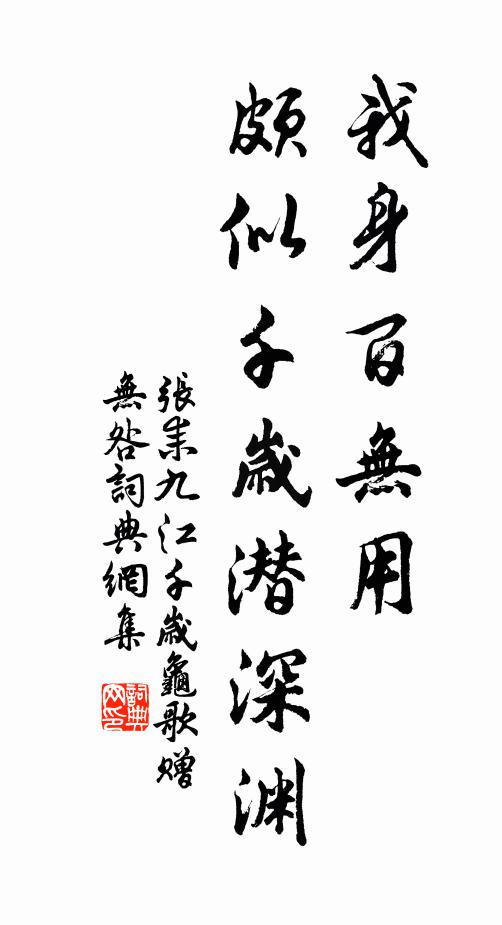 我身百無用
頗似千歲潜深淵
張耒九江千歲龜歌贈
無咎詞典網集
詞典
网印